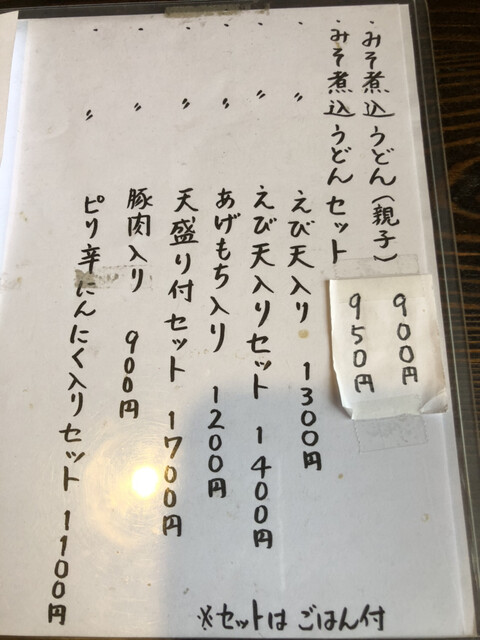 ・みそ煮込うどん(親子) 900円
・みそ煮込うどんセット 950円
・ 〃 えび天入り 1300円
・ 〃 えび天入りセット 1400円
・ 〃 あげもち入り 1200円
・ 〃 天盛り付セット 1700円
・ 〃 豚肉入り 900円
・ 〃 ピリ辛にんにく入りセット 1100円
※セットはごはん付